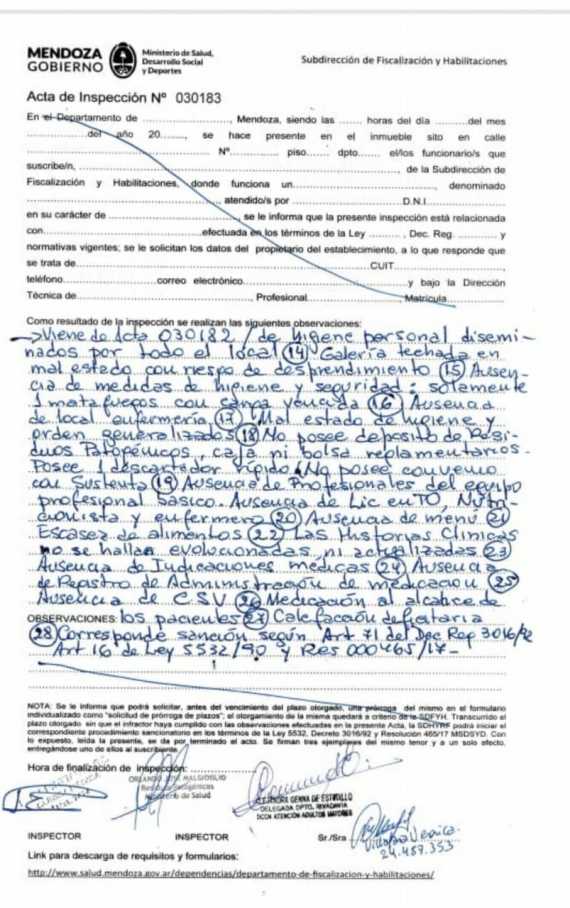 MENDOZA
GOBIERNO
Ministerio de Salud,
Desarrollo Social
y Deportes
Subdirección de Fiscalización y Habilitaciones
Acta de Inspección Nº 030183
En el Departamento de ........................, Mendoza, siendo las ........ horas del día .........del mes
......................del año 20......., se hace presente en el inmueble sito en calle
........................ Nº............ piso....... dpto....... el/los funcionario/s que
suscribe/n, ........................, de la Subdirección de
Fiscalización y Habilitaciones, donde funciona un........................, denominado
........................ atendido/s por ........................D.N.I........................
en su carácter de ........................, se le informa que la presente inspección está relacionada
con........................efectuada en los términos de la Ley .........., Dec. Reg. ......... y
normativas vigentes; se le solicitan los datos del propietario del establecimiento, a lo que responde que
se trata de........................CUIT........................,
teléfono........................correo electrónico........................y bajo la Dirección
Técnica de........................, Profesional........................, Matrícula........................
Como resultado de la inspección se realizan las siguientes observaciones:
→Viene de Acta 030182 / de higiene personal disemi-
nados por todo el local (14) Galería techada en
mal estado con riesgo de desprendimiento (15) Ausen-
cia de medidas de higiene y seguridad: solamente
1 matafuegos con carga vencida (16) Ausencia
de local enfermería (17) Mal estado de higiene y
orden generalizados (18) No posee deposito de Resi-
duos Patogénicos, caja ni bolsa reglamentarios.
Posee 1 descartador rígido / No posee convenio
con Sustenta (19) Ausencia de Profesionales del equipo
profesional básico. Ausencia de Lic en TO, Nutri-
cionista y enfermero (20) Ausencia de menú (21)
Escasez de alimentos (22) Las Historias Clínicas
no se hallan evolucionadas, ni actualizadas (23)
Ausencia de Indicaciones médicas (24) Ausencia
de Registro de Administración de medicación (25)
Ausencia de CSV (26) Medicación al alcance de
OBSERVACIONES: los pacientes (27) Calefacción deficitaria
(28) Corresponde sanción según Art 71 del Dec Reg 3016/92
Art 16 de Ley 5532/90 y Res 000465/17-
NOTA: Se le informa que podrá solicitar, antes del vencimiento del plazo otorgado, una prórroga del mismo en el formulario
individualizado como "solicitud de prórroga de plazos"; el otorgamiento de la misma quedará a criterio de la SDFYH. Transcurrido el
plazo otorgado sin que el infractor haya cumplido con las observaciones efectuadas en la presente Acta, la SDHYRF podrá iniciar el
correspondiente procedimiento sancionatorio en los términos de la Ley 5532, Decreto 3016/92 y Resolución 465/17 MSDSYD. Con
lo expuesto, leída la presente, se da por terminado el acto. Se firman tres ejemplares del mismo tenor y a un solo efecto,
entregándose uno de ellos al suscribiente.
Hora de finalización de inspección:
ORLANDO JOSÉ MALGIOGLIO
Residuos Patogénicos
Ministerio de Salud
ALEJANDRA GENNA DE ESTRELLO
DELEGADA DPTO. RIVADAVIA
DCCN ATENCIÓN ADULTOS MAYORES
INSPECTOR
INSPECTOR
Sr./Sra
24.457.353
Link para descarga de requisitos y formularios:
http://www.salud.mendoza.gov.ar/dependencias/departamento-de-fiscalizacion-y-habilitaciones/